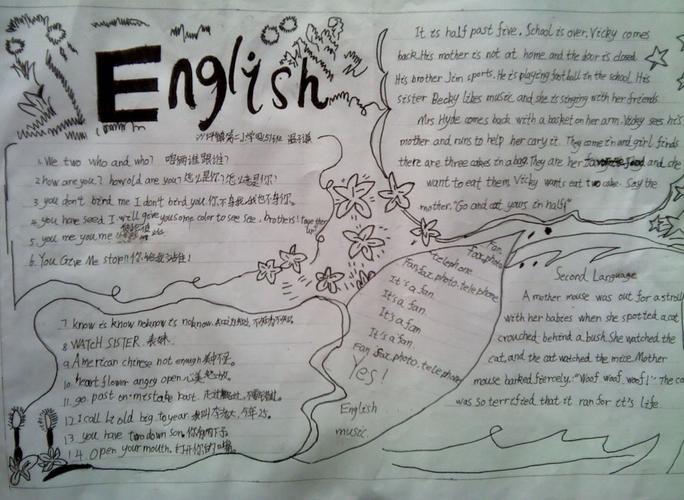 English
1. We two who and who? 咱俩谁跟谁?
2. how are you? how old are you? 怎么是你?怎么老是你?
3. you don't bird me I don't bird you 你不鸟我我也不鸟你。
4. you have seed I will give you some color to see see, brothers! together up!
5. you me you me
6. You Give Me stop!! 你给我站住!
7. know is know noknow is noknow.
8. WATCH SISTER 表妹
9. American chinese not enough 美中不足。
10. heart flower angry open 心花怒放。
11. go past no mistake past.
12. I call Li old big. toyear 我叫李老大,今年
13. you have two down son. 你有两下子。
14. Open your mouth.
It is half past five. School is over. Vicky comes
back. His mother is not at home and the door is closed.
His brother Jim sports. He is playing football in the school. His
sister Becky likes music and she is singing with her friends
Mrs Hyde comes back with a basket on her arm. Vicky sees his
mother and runs to help her cary it. They come in and girl finds
there are three cakes in a bag. They are her food and she
want to eat them. Vicky wants eat two cake. Say the
mother. "Go and eat yours in half."
Fan.
telephone
Fax. photo
Fan. fax. photo. telephone
It's a fan.
It's a fan.
It's a fan.
It's a fan.
Fan. fax. photo. telephone
Yes!
English
music.
Second Language
A mother mouse was out for a stroll
with her babies when she spotted a cat
crouched behind a bush. She watched the
cat, and the cat watched the mice. Mother
mouse barked fiercely, "Woof woof woof!" The cat
was so terrified that it ran for it's life